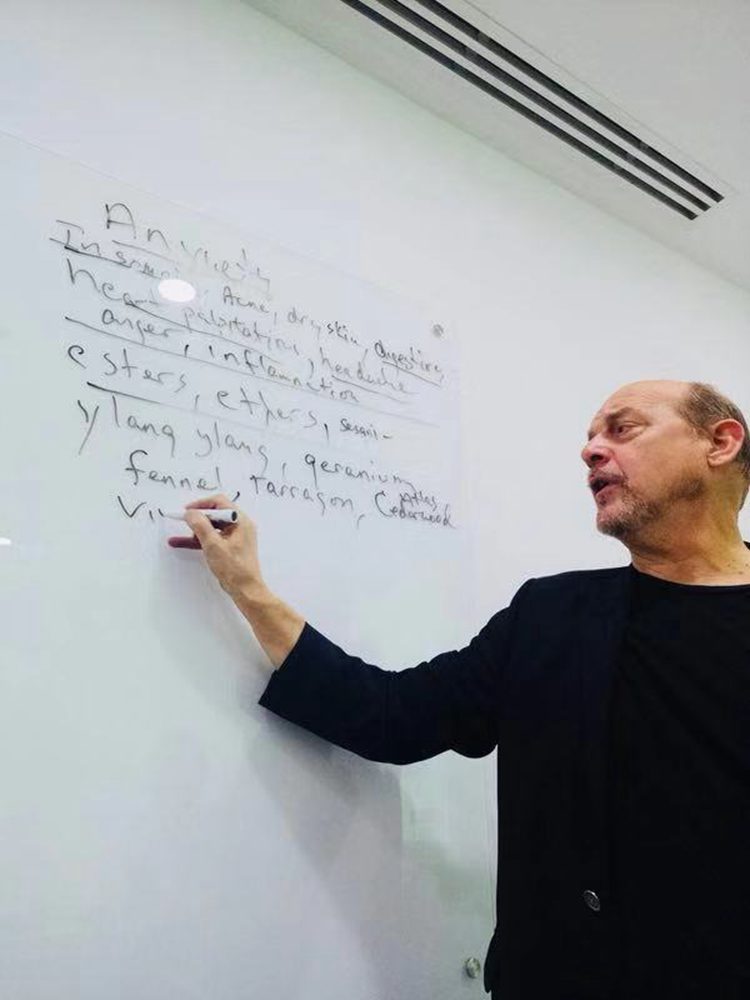 Anxiety
Insomnia, Acne, dry skin, digestive,
heart palpitations, headache
anger, inflammation
esters, ethers, sesqui-
ylang ylang, geranium
fennel, Tarragon, Atlas Cedarwood